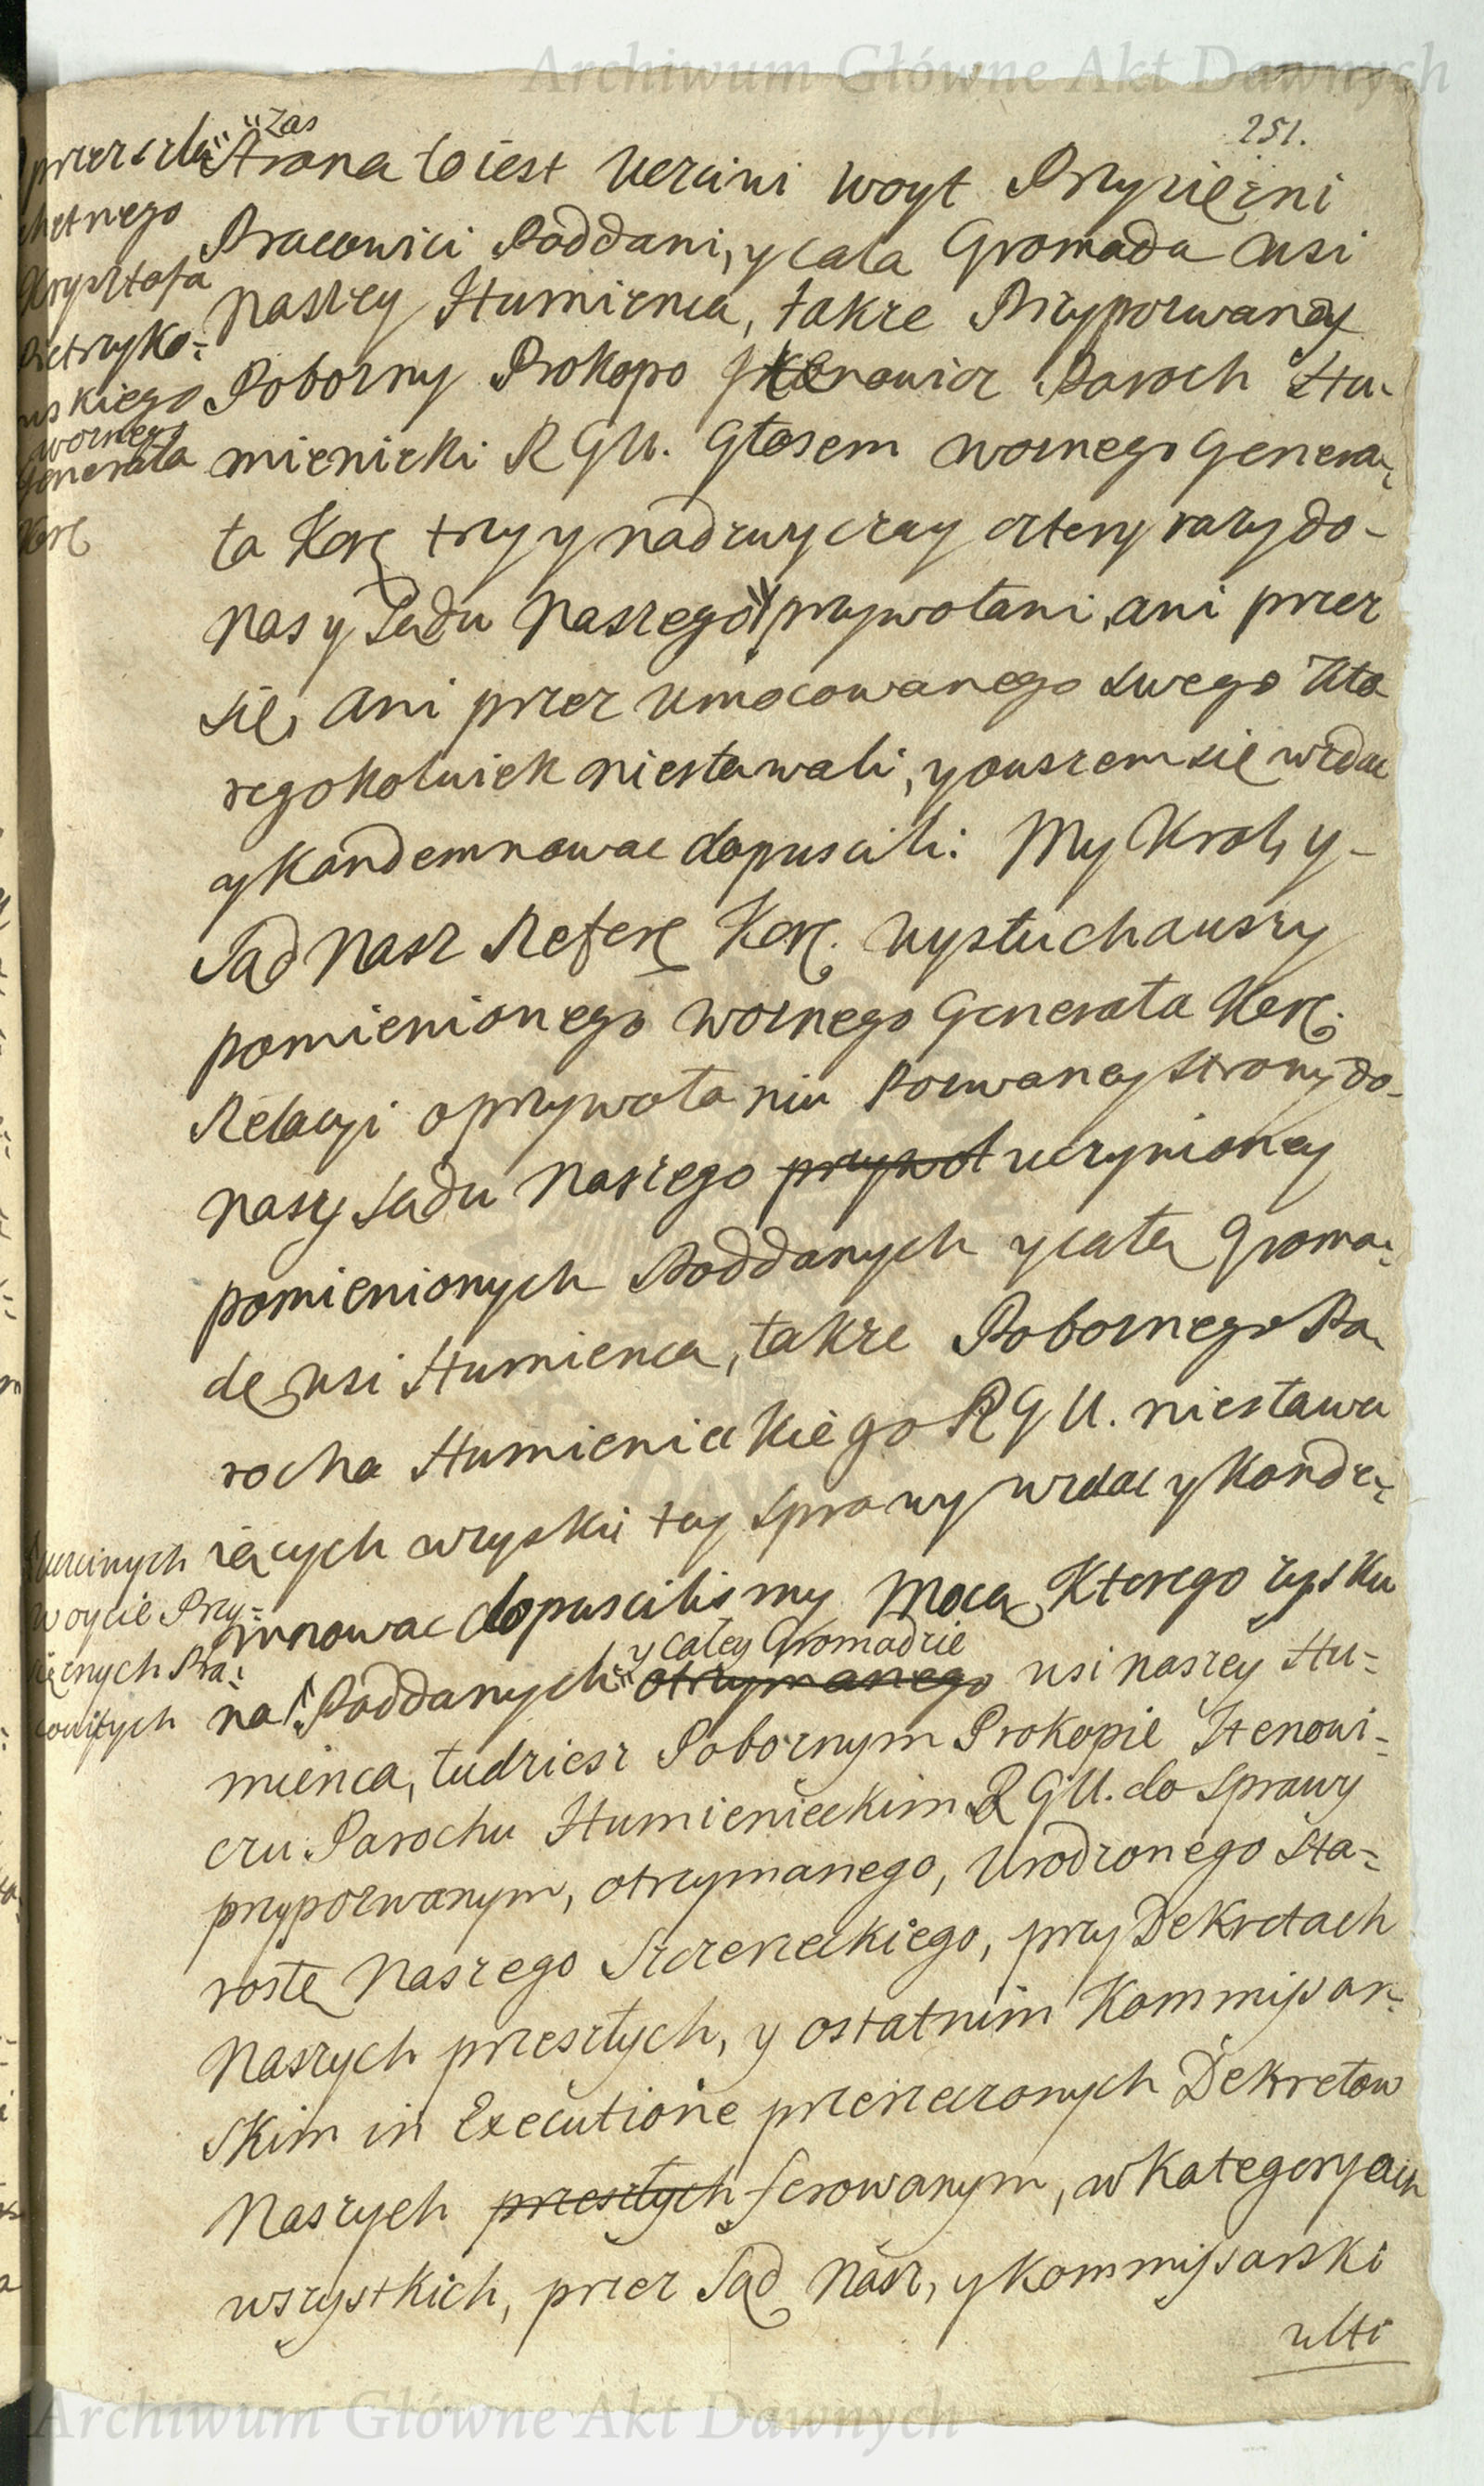 Archiwum Główne Akt Dawnych
251.
zas
Strona to iest Ucziwi woyt Przysiężni
Pracowici Poddani, y cała Gromada wsi
Naszey Stumienca, takze Przypozwaney
Poborny Prokop Stenowicz Paroch Stu-
mienicki R G U. Głosem woznego Genera-
ła Kor. trzy y nadzwyczay cztery razy do-
nas y Sądu Naszego przywołani, ani przez
się, ani przez umocowanego swego kto
regokolwiek niestawali, y owszem się wzdac
y kondemnowac dopuscili: My Krol, y-
Sąd Nasz Refer. Kor. wysłuchawszy
pomienionego woznego Generała Kor.
Relacyi o przywołaniu Pozwaney strony do-
nas y sądu Naszego przywoł uczynioney
pomienionych Poddanych y całą Groma-
dę wsi Stumienca, takze Pobornego Pa
rocha Stumienickiego R G U. niestawa
iących w zysku tey sprawy wzdac y konde-
mnowac dopuscilismy. Mocą ktorego zysku
y całey Gromadzie
na Poddanych otrzymanego wsi naszey Stu-
mienca, tudziesz Pobornym Prokopie Stenowi-
czu Parochu Stumienickim R G U. do sprawy
przypozwanym, otrzymanego, Urodzonego Sta-
rostę Naszego Szczerzeckiego, przy Dekretach
Naszych przeszłych, y ostatnim Kommissar-
skim in Executione przerzeczonych Dekretow
Naszych przeszłych ferowanym, w Kategoryach
wszystkich, przez Sąd Nasz, y Kommissarski
ulti
przez szla
chetnego
Krysztofa
Pietrzyko-
wskiego
woznego
Generała
Kor.
Ucziwych
Woycie Przy-
siężnych Pra-
cowitych
Archiwum Główne Akt Dawnych